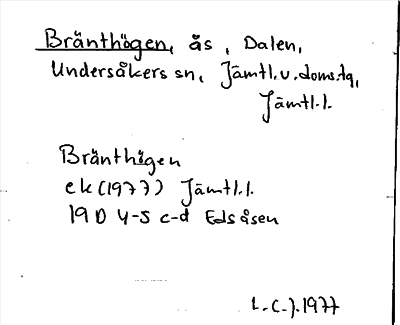 Bränthögen, ås, Dalen,
Undersåkers sn, Jämtl.v.doms.tg,
Jämtl.l.
Bränthögen
ek (1977) Jämtl.l.
19D 4-5 c-d Edsåsen
L.C.J.1977